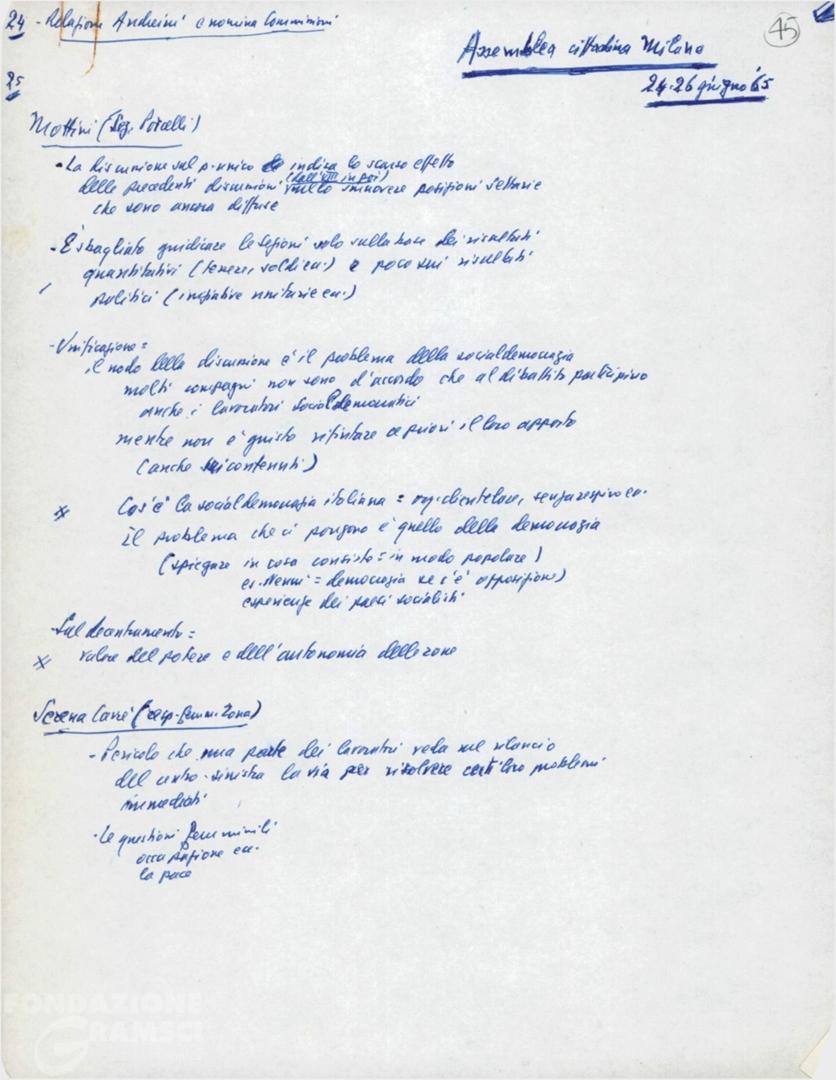 24 - Relazione Andreini e nomina Commissioni
45
Assemblea cittadina Milano
24-26 giugno '65
25
Mottini (Seg. Porcelli)
- La discussione sul p. unico indica lo scarso effetto
delle precedenti discussioni (dall'VIII in poi) nello smuovere posizioni settarie
che sono ancora diffuse
- È sbagliato giudicare le sezioni solo sulla base dei risultati
quantitativi (tessere, soldi ecc.) e poco sui risultati
politici (iniziative unitarie ecc.)
- Unificazione =
il nodo della discussione è il problema della socialdemocrazia
molti compagni non sono d'accordo che al dibattito partecipino
anche i lavoratori socialdemocratici
mentre non è giusto rifiutare a priori il loro apporto
(anche sui contenuti)
Cos'è la socialdemocrazia italiana = clientelare, senza respiro ecc.
Il problema che ci pongono è quello della democrazia
(spiegare in cosa consiste = in modo popolare)
es. Nenni = democrazia se c'è opposizione)
esperienze dei paesi socialisti
- Sul decentramento =
valore del potere e dell'autonomia delle zone
Serena (resp. femm. Zona)
- Pericolo che una parte dei lavoratori veda nel rilancio
del centro-sinistra la via per risolvere certi loro problemi
immediati
- Le questioni femminili
occupazione ecc.
la pace
FONDAZIONE
GRAMSCI